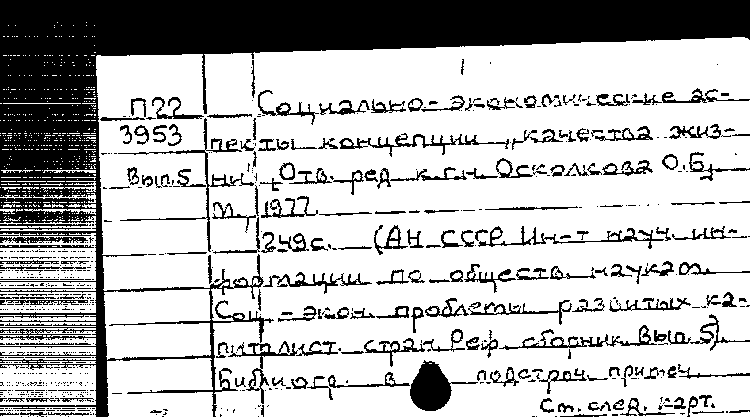 П22 Социально-экономические ас-
3953 пекты концепции „качества жиз-
Вып.5 ни". [Отв. ред. к.г.н. Осколкова О.Б.]
М., 1977.
249с. (АН СССР. Ин-т науч. ин-
формации по обществ. наукам.
Соц.-экон. проблемы развитых ка-
питалист. стран. Реф. сборник. Вып. 5).
Библиогр. в подстроч. примеч.
См. след. карт.